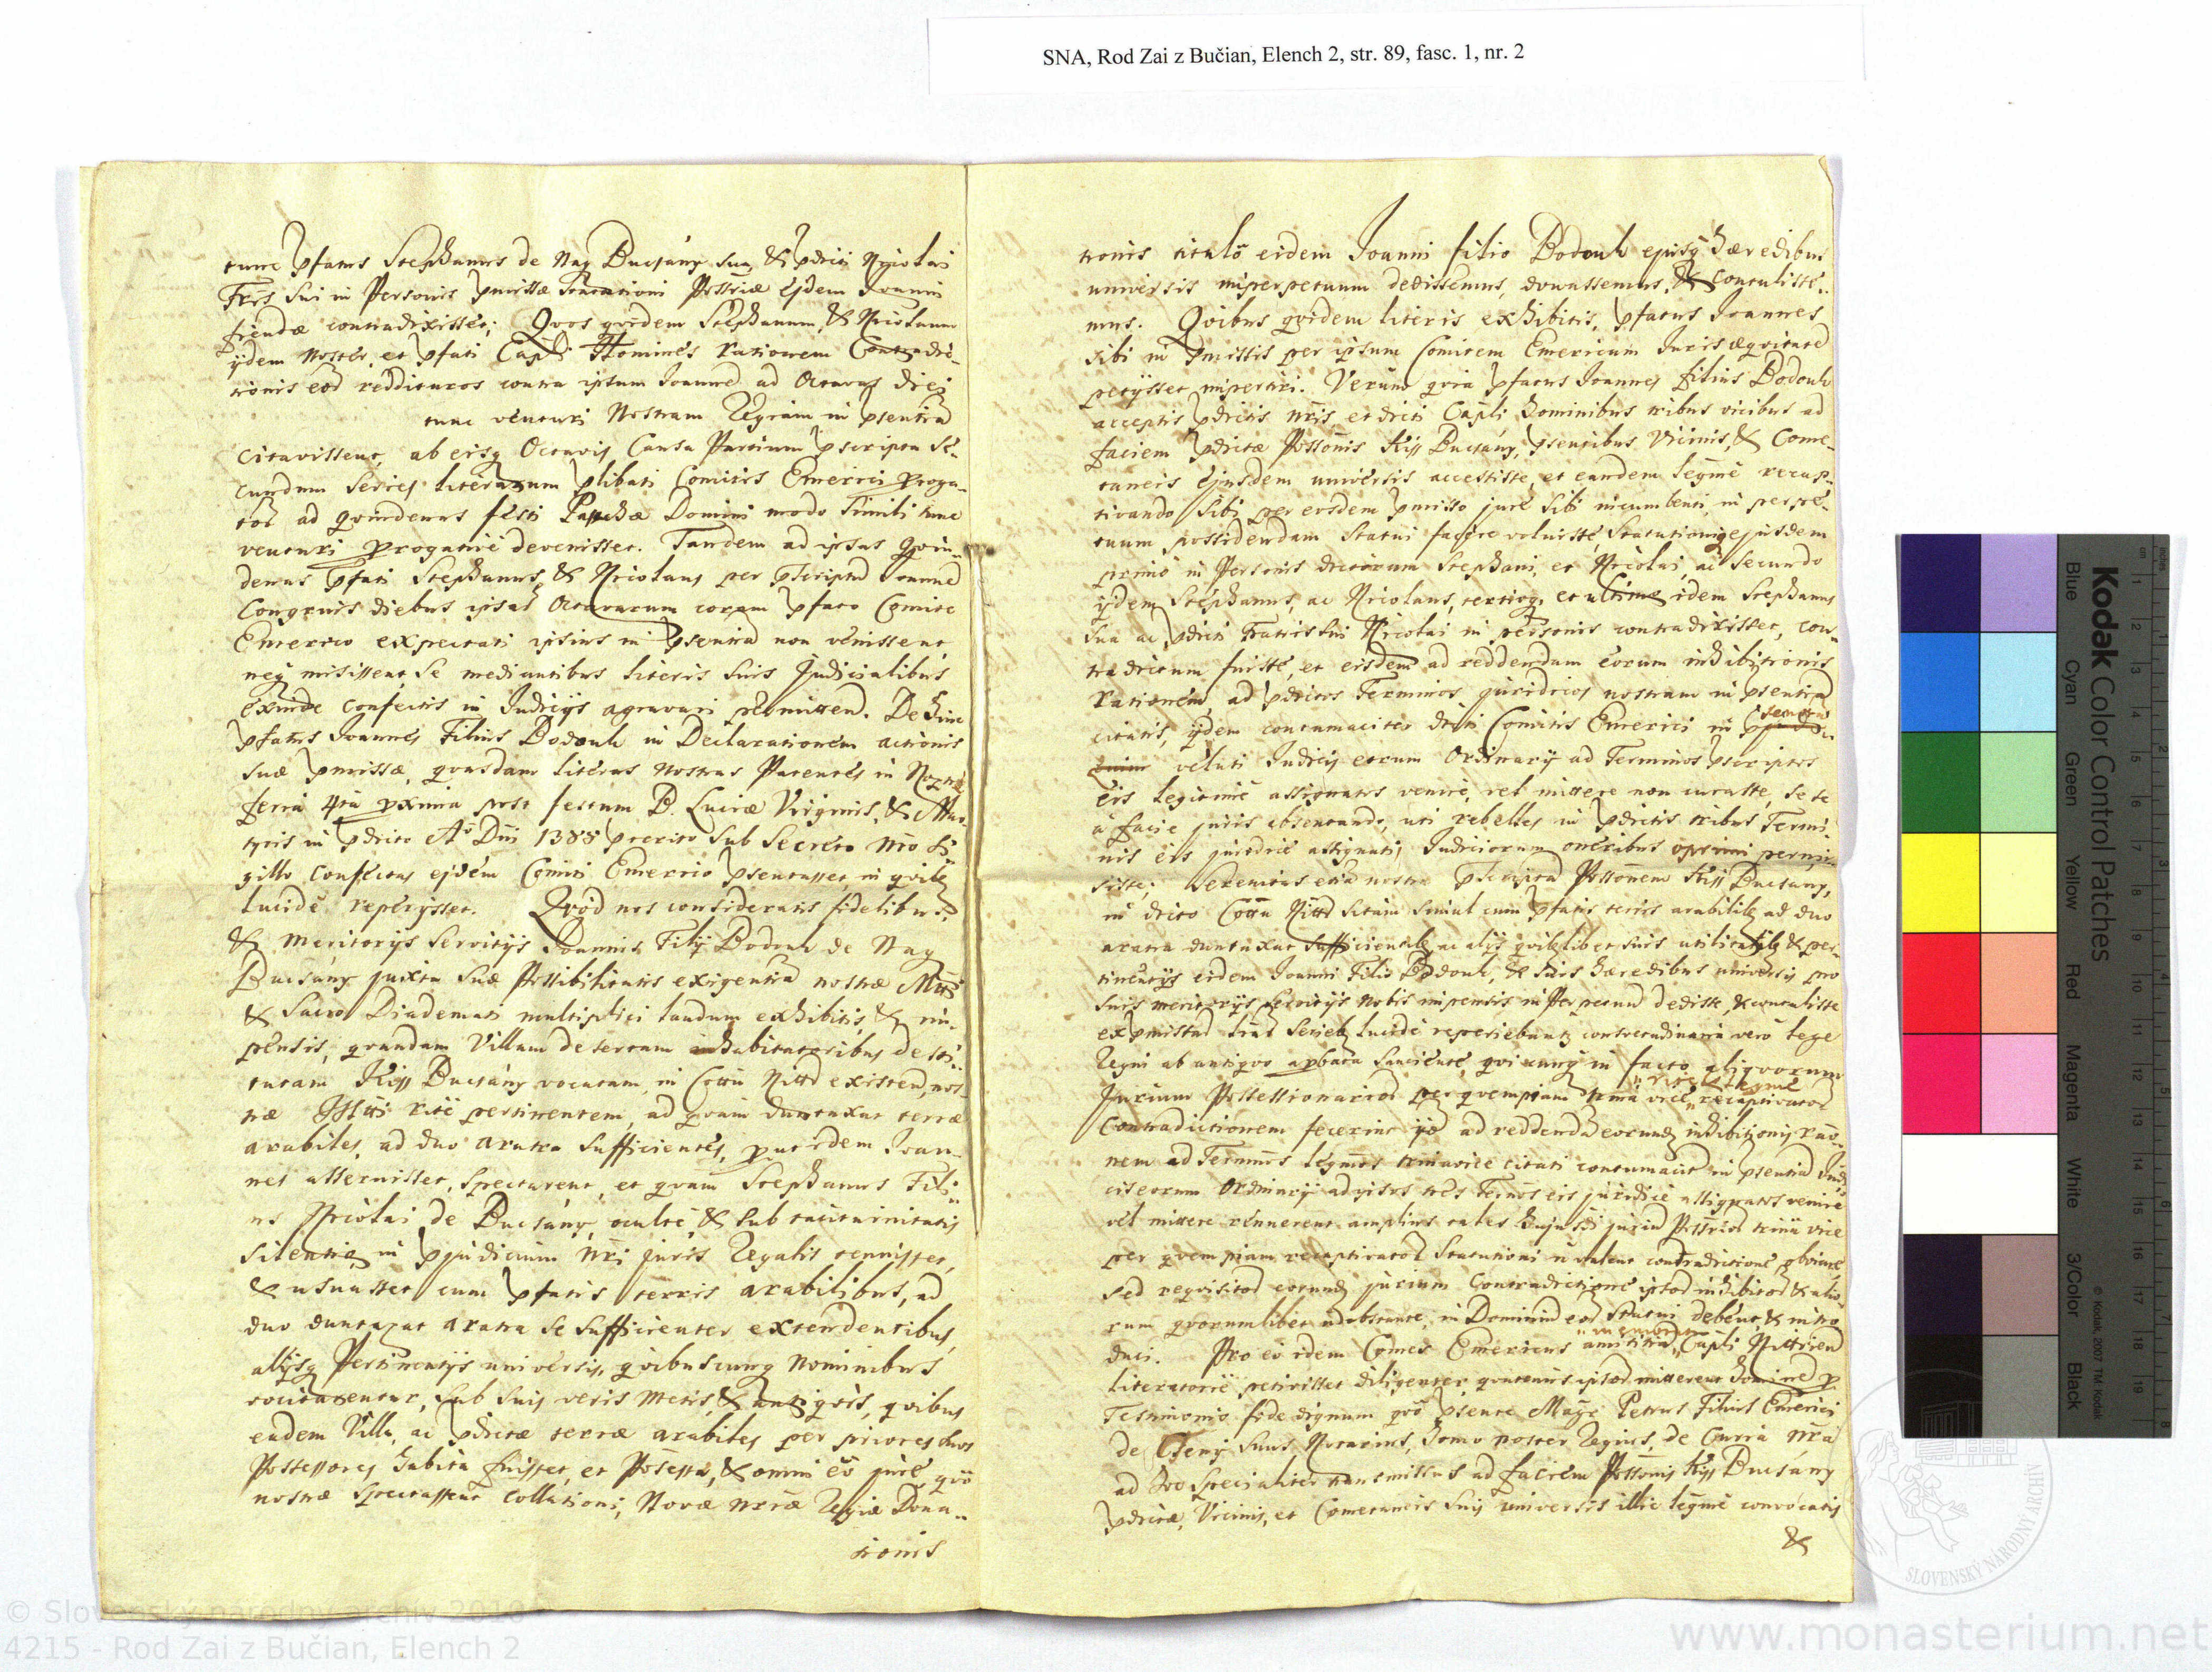 SNA, Rod Zai z Bučian, Elench 2, str. 89, fasc. 1, nr. 2
tunc pfatus Stephanus de Nag Bucsány sua, & pdicti Nicolai
Fris sui in Personis pmissæ Statutioni Possriæ ejdem Joanni
fiendæ contradixisset; Quos quidem Stephanum, & Nicolaum
ijdem noster, et pfati Capli Homines rationem Contradic-
tionis eod reddituros contra ipsum Joannē ad Octavas diei
tunc venturi Nostram Regiam in psentiā
Citavissent, ab eisq Octavis Causa Partium pscripta Se-
cundum Series literarum plibati Comitis Emerici proga-
tod ad quindenas festi Paschæ Domini modo simili tunc
venturi Progative devenisset. Tandem ad ipsas quin-
denas pfati Stephanus, & Nicolaus per pscriptū Joannē
Congruis diebus ipsas Octavarum coram pfato Comite
Emerico expectati ipsius in psentiā non venissent,
neq misissent Se mediantibus literis suis Judicialibus
exinde confectis in Judicijs agravari permittend. Dehinc
pfatus Joannes Filius Bodouh in Declarationem actionis
suæ pmissæ, quasdam literas nostras Patentes in
feria 4ta pxmia post festum B. Luciæ Virginis, & Mar-
tyris in pdicto Ao Dni 1388 pterito Sub Secreto nro Si-
gillo Confectas ejdem Comiti Emerico psentasset, in quibq
lucide reperijsset. Quod nos consideratis fidelibus,
& meritorijs servitijs Joannis Filij Bodouh de Nag
Bucsány juxta suæ Possibilitatis exigentiā nostræ Mtti
& Sacro Diademati multiplici laudum exhibitis, & im-
pensis, quandam Villam desertam inhabitatoribus desti-
tutam Kiss Bucsány vocatam, in Cottu Nittr existen, nos-
træ rite pertinentem, ad quam duntaxat terræ
arabiles, ad duo aratra sufficientes, prout idem Joan-
nes asseruisset, spectarent, et quam Stephanus Fili-
us Nicolai de Bucsány, oculte, & sub taciturnitatis
Silentio, in pjudicium nri juris Regalis tenuisset,
& usuasset cum pfatis terris arabilibus, ad
duo duntaxat aratra se sufficienter extendentibus,
alijsq Pertinentijs universis, quibuscunq nominibus
vocitarentur, sub suis veris metis, & antiquis, quibus
eadem Villa, ac pdictæ terræ arabiles per priores suos
Possessores habita fuisset, et Possessa, & omni eo jure quo
nostræ spectassent Collationi, Novæ nræ Regiæ Dona-
tionis
tionis titulō eidem Joanni filio Bodouh ejusq hæredibus
universis inperpetuum dedissemus, donassemus, & contulisse-
mus. Quibus quidem literis exhibitis, pfatus Joannes
sibi in pmissis per ipsum Comitem Emericum Juris æquitatē
petijsset impertiri. Verum quia pfatus Joannes filius Bodouh
acceptis pdictis nris et dicti Capli hominibus tribus vicibus ad
faciem pdictæ Possonis Kiss Bucsány, psentibus Vicinis, & Come-
taneis ejusdem universis accessisse, et eandem legme recap-
tivando sibi per eosdem pmisso jure sibi incumbenti in perpe-
tuum possidendam Statui facere voluisse, Statutioniq ejusdem
primo in Personis dictorum Stephani, et Nicolai, ac Secundo
ijdem Stephanus, ac Nicolaus, tertioq, et ultimo idem Stephanus
sua ac pdicti Fratris sui Nicolai in personis contradixisset, con-
tradictum fuisse, et eisdem ad reddendam eorum inhibitionis
rationem, ad pdictos Terminos juridicos nostram in psentiā
citatis, ijdem contumaciter dicti Comitis Emerici in
veluti Judicis eorum Ordinarij ad Terminos pscriptos
eis legitime assignatos venire, vel mittere non curasse, sese
a facie juris absentando, uti rebelles in pdictis tribus Termi-
nis eis juridice assignatis Judiciorum oneribus opprimi permi-
sisse; Serenitas etiā nostra pscriptā Possonem Kiss Bucsany,
in dicto Cottu Nittr sitam simul cum pfatis terris arabilibq ad duo
aratra duntaxat sufficientibq ac alijs quiblibet suis utilitatibq & per-
tinentijs eidem Joanni Filio Bodouh, & suis hæredibus universis pro
suis meritorijs servitijs nobis impensis in Perpetuum dedisse, & contulisse
ex pmissad lrad Seriebq lucide reperiebantq contuetudinaria vero lege
Regni ab antiquo apbata Sanciente, quicunq in facto aliquorum
Jurium Possessionariod per quempiam trina vice recaptivatod
Contradictionem fecerint ijd ad reddendā eorundq inhibitionis rao-
nem ad Terminos legmos trinavice citati contumacit in psentiā Judi-
cis eorum Ordinarij ad ipsos tres Termos eis juridice assignatos venire
vel mittere rennerent amplius tales hujusdi juriud Possriod trina vice
per quempiam recaptivatod Statutioni n valent contradictione obviare,
sed requisitod eorundq jurium Contradictione istod inhibitod & alio-
rum quorumlibet n obstante, in Dominiud eod Statui debent & intro-
duci. Pro eo idem Comes Emericus amicitia Capli Nittrien
literatorie petivisset diligenter quatenus ipsod mitterent hominē p
Testimonio fide dignum quo psente Magr Petrus Filius Emerici
de Cseny suus Notarius, homo noster Regius, de Curia nra
ad hoc specialiter transmissus ad faciem Possonis Kiss Bucsány
pdictæ, Vicinis, et Cometaneis suis universis illic legme convocatis
&
Kodak Color Control Patches
Blue Cyan Green Yellow Red Magenta White 3/Color Black
© Kodak, 2007 TM: Kodak
SLOVENSKÝ NÁRODNÝ ARCHÍV
© Slovenský národný archív 2010
4215 - Rod Zai z Bučian, Elench 2
www.monasterium.net